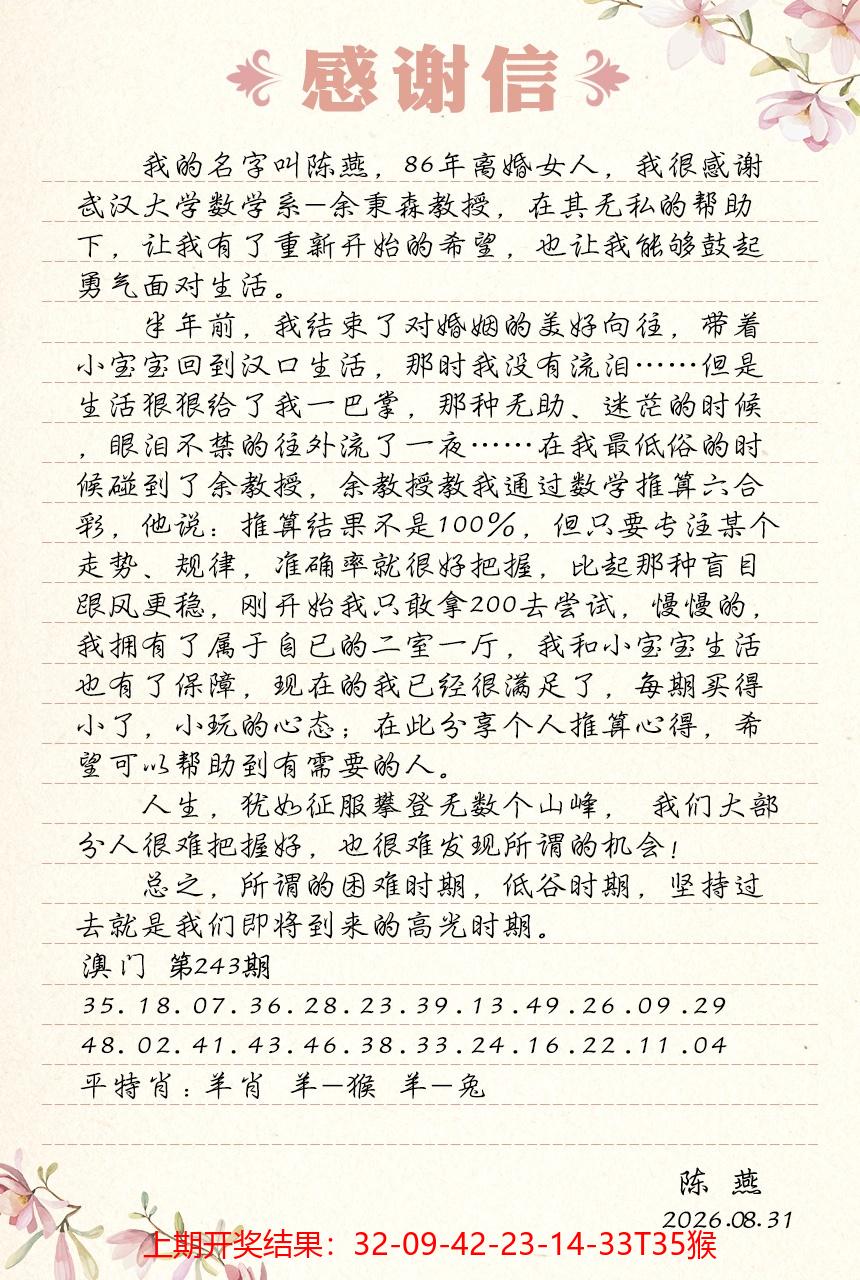 感谢信
我的名字叫陈燕，86年离婚女人，我很感谢
武汉大学数学系—余秉森教授，在其无私的帮助
下，让我有了重新开始的希望，也让我能够鼓起
勇气面对生活。
半年前，我结束了对婚姻的美好向往，带着
小宝宝回到汉口生活，那时我没有流泪……但是
生活狠狠给了我一巴掌，那种无助、迷茫的时候
，眼泪不禁的往外流了一夜……在我最低俗的时
候碰到了余教授，余教授教我通过数学推算六合
彩，他说：推算结果不是100%，但只要专注某个
走势、规律，准确率就很好把握，比起那种盲目
跟风更稳，刚开始我只敢拿200去尝试，慢慢的，
我拥有了属于自已的二室一厅，我和小宝宝生活
也有了保障，现在的我已经很满足了，每期买得
小了，小玩的心态；在此分享个人推算心得，希
望可以帮助到有需要的人。
人生，犹如征服攀登无数个山峰， 我们大部
分人很难把握好，也很难发现所谓的机会！
总之，所谓的困难时期，低谷时期，坚持过
去就是我们即将到来的高光时期。
澳门 第243期
35.18.07.36.28.23.39.13.49.26.09.29
48.02.41.43.46.38.33.24.16.22.11.04
平特肖：羊肖 羊—猴 羊—兔
陈 燕
2026.08.31
上期开奖结果：32-09-42-23-14-33T35猴